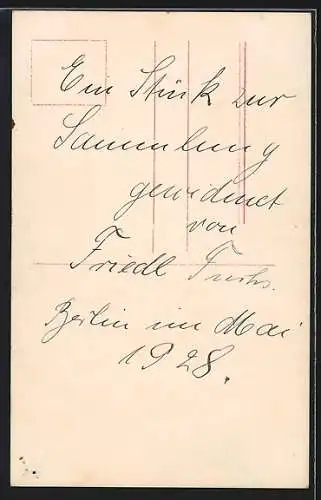 Ein Stük zur
Sammlung
gewidmet
von
Friedl Fuchs.
Berlin im Mai
1928.